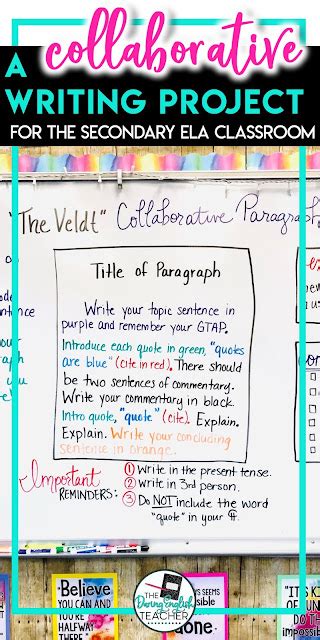 A collaborative
WRITING PROJECT
FOR THE SECONDARY ELA CLASSROOM
"The Veldt" Collaborative Paragraph
Title of Paragraph
Write your topic sentence in
purple and remember your GTAP.
Introduce each quote in green, "quotes
are blue" (cite in red). There should
be two sentences of commentary.
Write your commentary in black.
Intro quote, "quote" (cite). Explain.
Explain. Write your concluding
sentence in orange.
Important
REMINDERS:
① Write in the present tense.
② Write in 3rd person.
③ Do NOT include the word
"quote" in your ¶.
"Believe
YOU CAN AND
YOU'RE
HALFWAY
THERE
THE
Daring English
TEACHER
"IT'S KI
OF FUN
DO TH
impossi